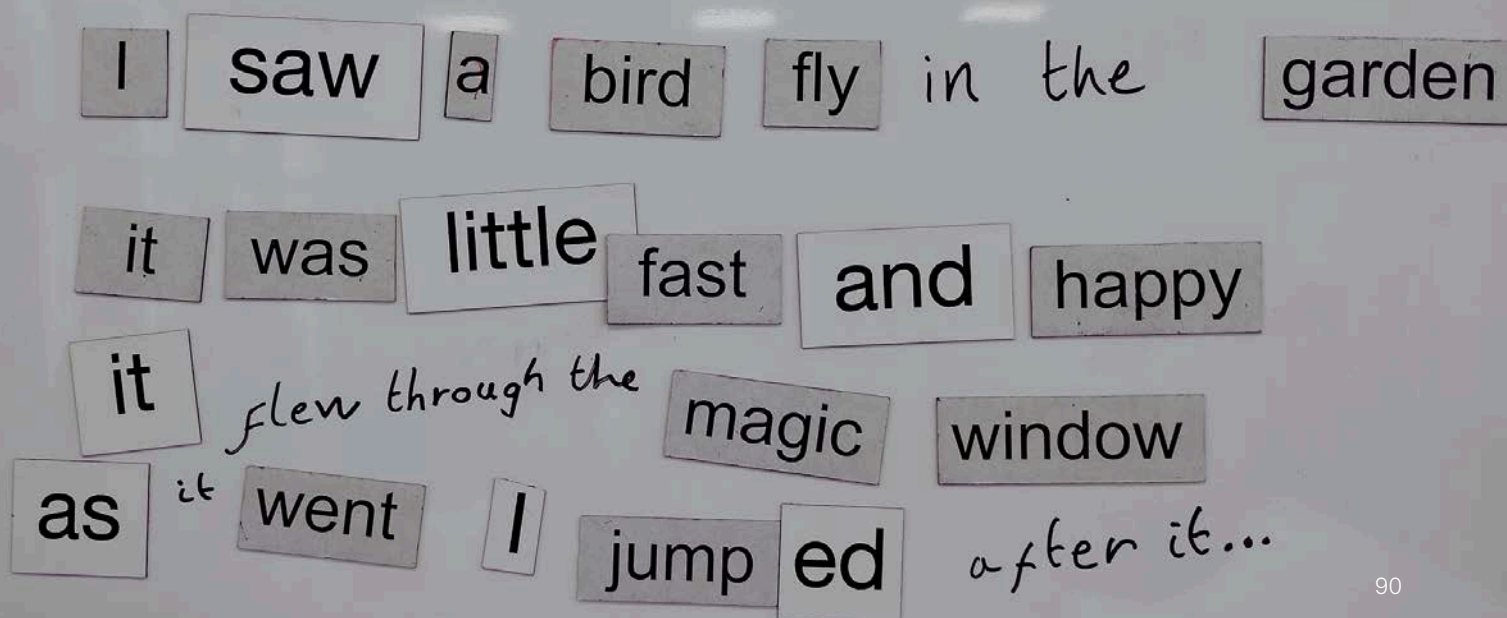 I saw a bird fly in the garden
it was little fast and happy
it flew through the magic window
as it went I jumped after it...
90